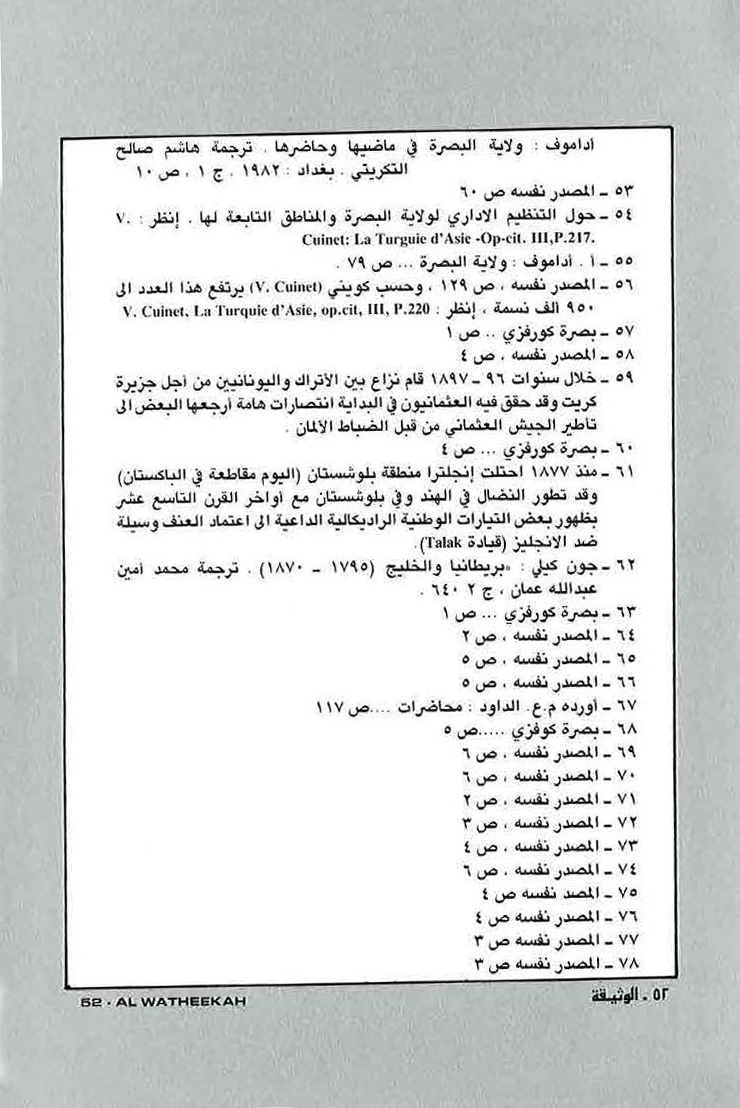 أداموف : ولاية البصرة في ماضيها وحاضرها . ترجمة هاشم صالح
التكريتي . بغداد : ١٩٨٢ . ج ١ ، ص ١٠
٥٣ ــ المصدر نفسه ص ٦٠
٥٤ ــ حول التنظيم الاداري لولاية البصرة والمناطق التابعة لها . إنظر : .V
Cuinet: La Turguie d'Asie -Op-cit. III,P.217.
٥٥ ــ أ . أداموف : ولاية البصرة ... ص ٧٩ .
٥٦ ــ المصدر نفسه ، ص ١٢٩ ، وحسب كويني (V. Cuinet) يرتفع هذا العدد الى
٩٥٠ ألف نسمة ، إنظر : V. Cuinet, La Turquie d'Asie, op.cit, III, P.220
٥٧ ــ بصرة كورفزي .. ص ١
٥٨ ــ المصدر نفسه ، ص ٤
٥٩ ــ خلال سنوات ٩٦ ــ ١٨٩٧ قام نزاع بين الأتراك واليونانيين من أجل جزيرة
كريت وقد حقق فيه العثمانيون في البداية انتصارات هامة أرجعها البعض الى
تأطير الجيش العثماني من قبل الضباط الألمان .
٦٠ ــ بصرة كورفزي ... ص ٤
٦١ ــ منذ ١٨٧٧ احتلت إنجلترا منطقة بلوشستان (اليوم مقاطعة في الباكستان)
وقد تطور النضال في الهند وفي بلوشستان مع أواخر القرن التاسع عشر
بظهور بعض التيارات الوطنية الراديكالية الداعية الى اعتماد العنف وسيلة
ضد الانجليز (قيادة Talak).
٦٢ ــ جون كيلي : «بريطانيا والخليج (١٧٩٥ ــ ١٨٧٠) . ترجمة محمد أمين
عبدالله عمان ، ج ٢ ٦٤٠ .
٦٣ ــ بصرة كورفزي ... ص ١
٦٤ ــ المصدر نفسه ، ص ٢
٦٥ ــ المصدر نفسه ، ص ٥
٦٦ ــ المصدر نفسه ، ص ٥
٦٧ ــ أورده م.ع. الداود : محاضرات ....ص ١١٧
٦٨ ــ بصرة كوفزي .....ص ٥
٦٩ ــ المصدر نفسه ، ص ٦
٧٠ ــ المصدر نفسه ، ص ٦
٧١ ــ المصدر نفسه ، ص ٢
٧٢ ــ المصدر نفسه ، ص ٣
٧٣ ــ المصدر نفسه ، ص ٤
٧٤ ــ المصدر نفسه ، ص ٦
٧٥ ــ المصد نفسه ص ٤
٧٦ ــ المصدر نفسه ص ٤
٧٧ ــ المصدر نفسه ص ٣
٧٨ ــ المصدر نفسه ص ٣
٥٢ ـ الوثيقة
52 - AL WATHEEKAH